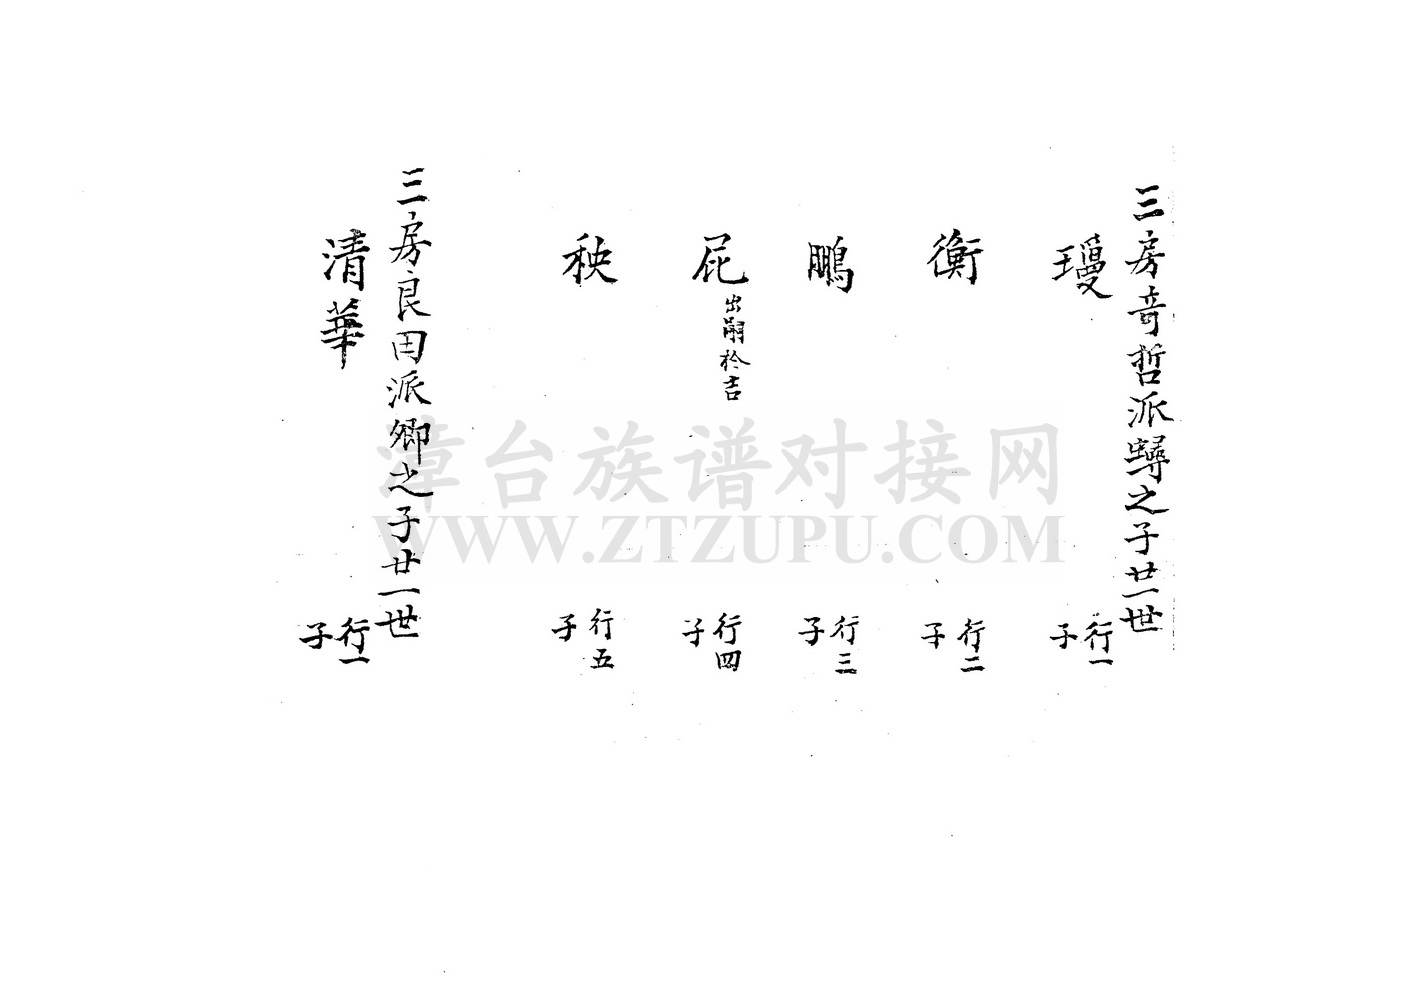 三房奇哲派蟳之子廿一世
瓊 行一 子
衡 行二 子
鵬 行三 子
屁 出嗣於吉 行四 子
秧 行五 子
三房良田派卿之子廿一世
清華 行一 子
漳台族谱对接网
WWW.ZTZUPU.COM